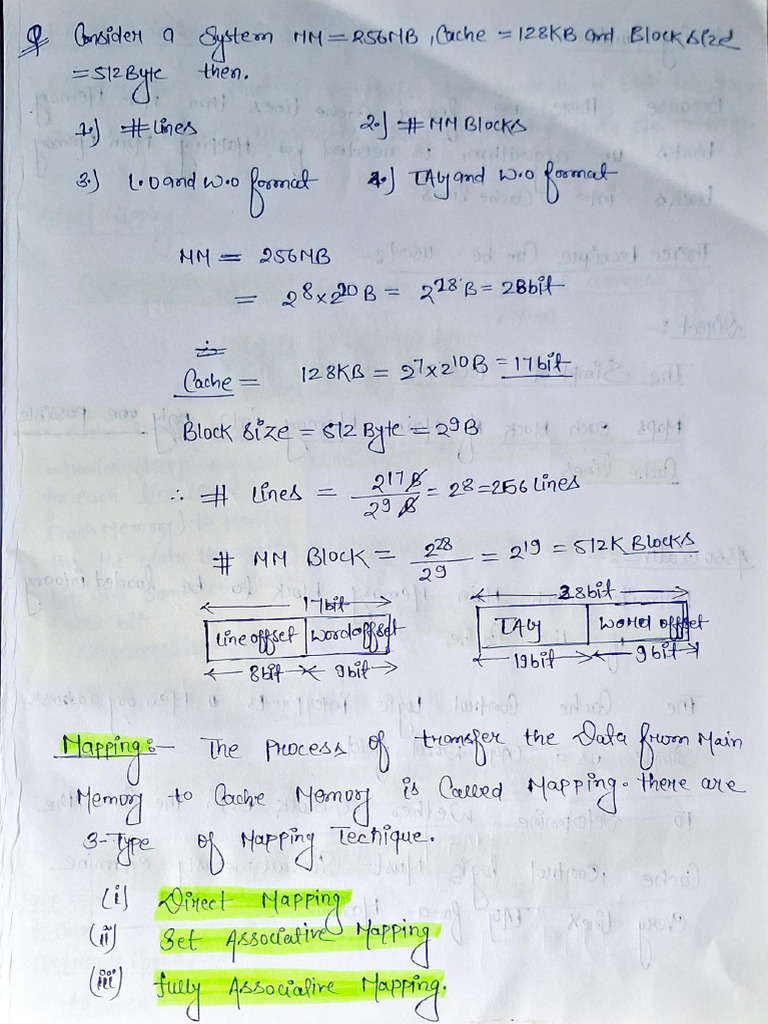 Q Consider a System MM = 256MB, Cache = 128KB and Block size
= 512 Byte then.
1.) # Lines 2.) # MM Blocks
3.) L.O and W.O format 4.) TAG and W.O format
MM = 256MB
= 2^8 x 2^20 B = 2^28 B = 28bit
Cache = 128KB = 2^7 x 2^10 B = 17bit
Block Size = 512 Byte = 2^9 B
∴ # Lines = 2^17 B / 2^9 B = 2^8 = 256 Lines
# MM BLOCK = 2^28 / 2^9 = 2^19 = 512K Blocks
17bit 28bit
Line offset Word offset TAG Word offset
8bit 9bit 19bit 9bit
Mapping:- The Process of transfer the Data from Main
Memory to Cache Memory is Called Mapping. there are
3-Type of Mapping Techique.
(i) Direct Mapping
(ii) Set Associative Mapping
(iii) fully Associative Mapping.